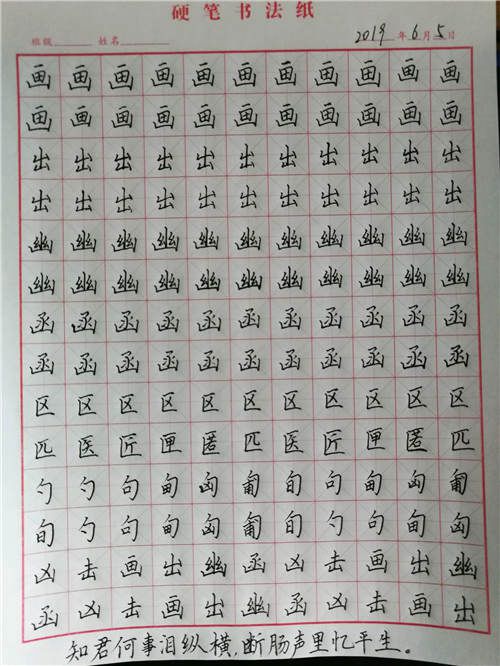 硬笔书法纸
班级 姓名 2019年6月5日
画画画画画画画画画画画
画画画画画画画画画画画
出出出出出出出出出出出
出出出出出出出出出出出
幽幽幽幽幽幽幽幽幽幽幽
幽幽幽幽幽幽幽幽幽幽幽
函函函函函函函函函函函
函函函函函函函函函函函
区区区区区区区区区区区
匹医匠匣匿匹医匠匣匿匹
勺勺句甸匈匍旬句甸匈匍
旬勺句甸匈匍旬勺句甸匈
凶击画出幽函凶击画出幽
函凶击画出幽函凶击画出
知君何事泪纵横,断肠声里忆平生。